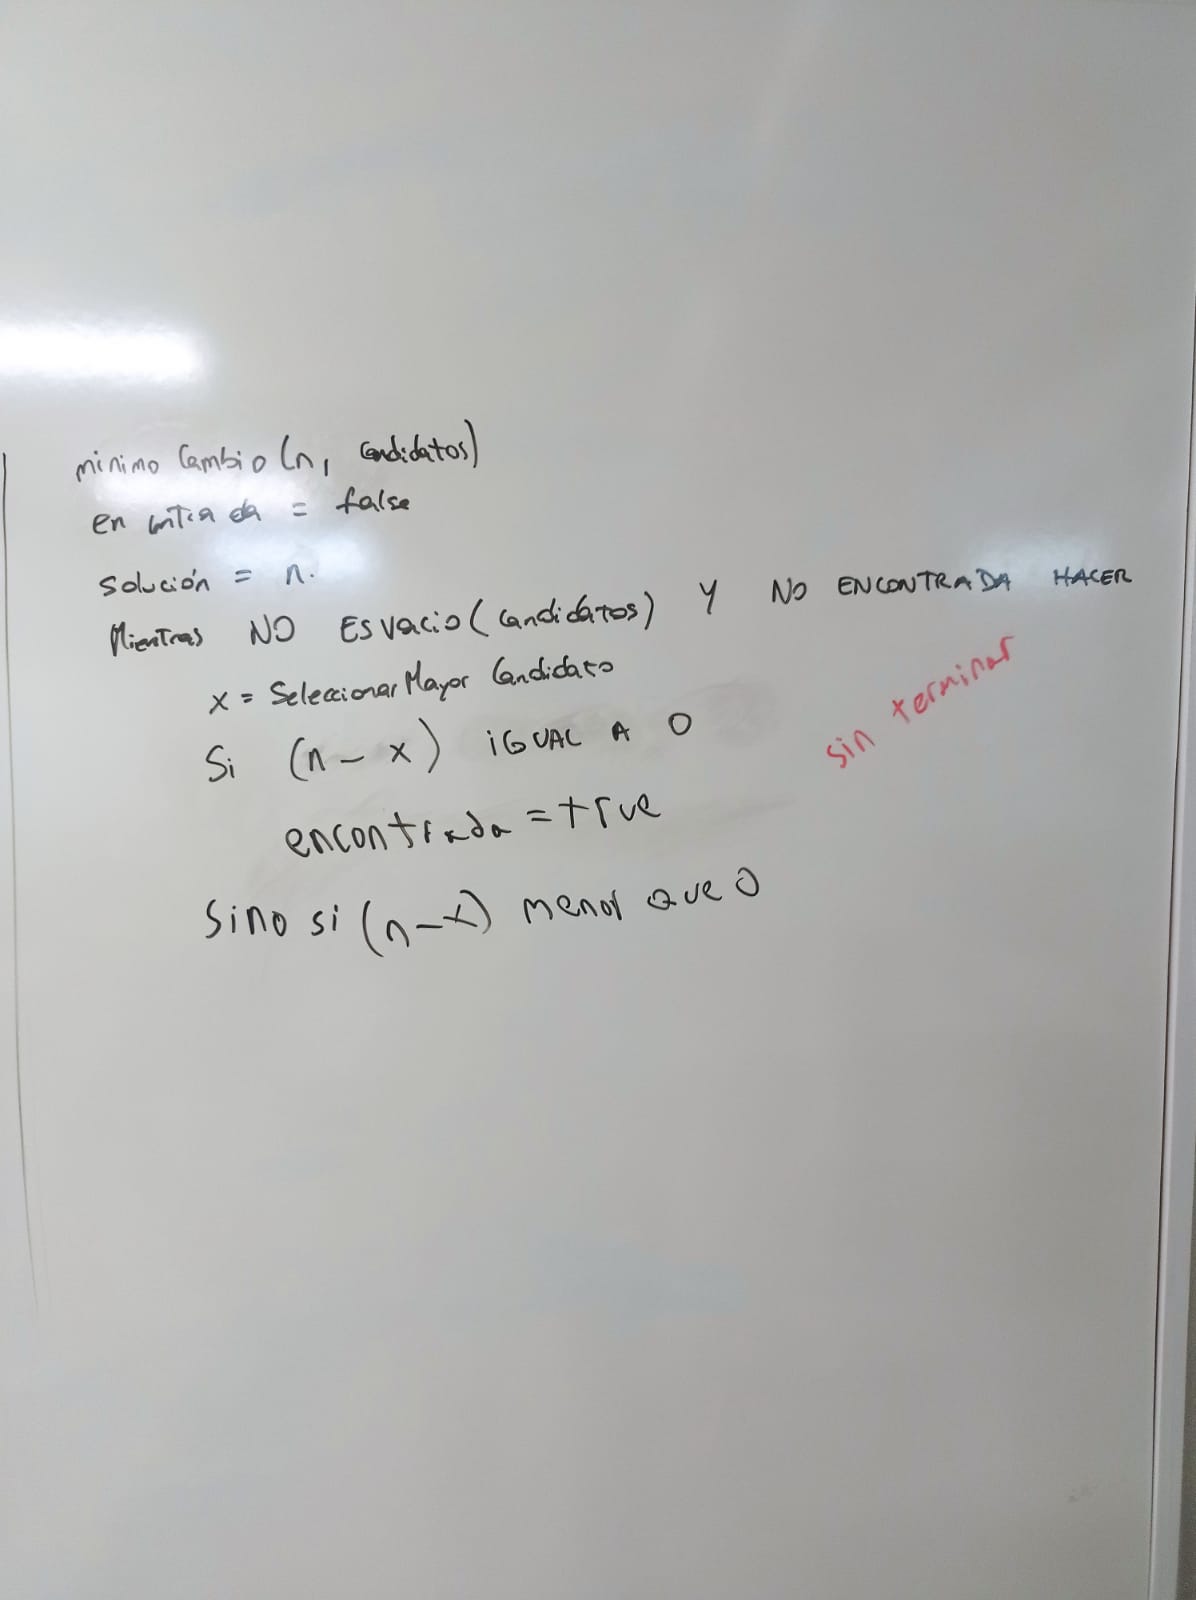 minimo Cambio (n, Candidatos)
encontrada = false
solución = n.
Mientras NO Es vacio (Candidatos) Y NO ENCONTRADA HACER
x = Seleccionar Mayor Candidato
sin terminar
Si (n - x) iGUAL A 0
encontrada = true
Sino si (n-x) menor que 0